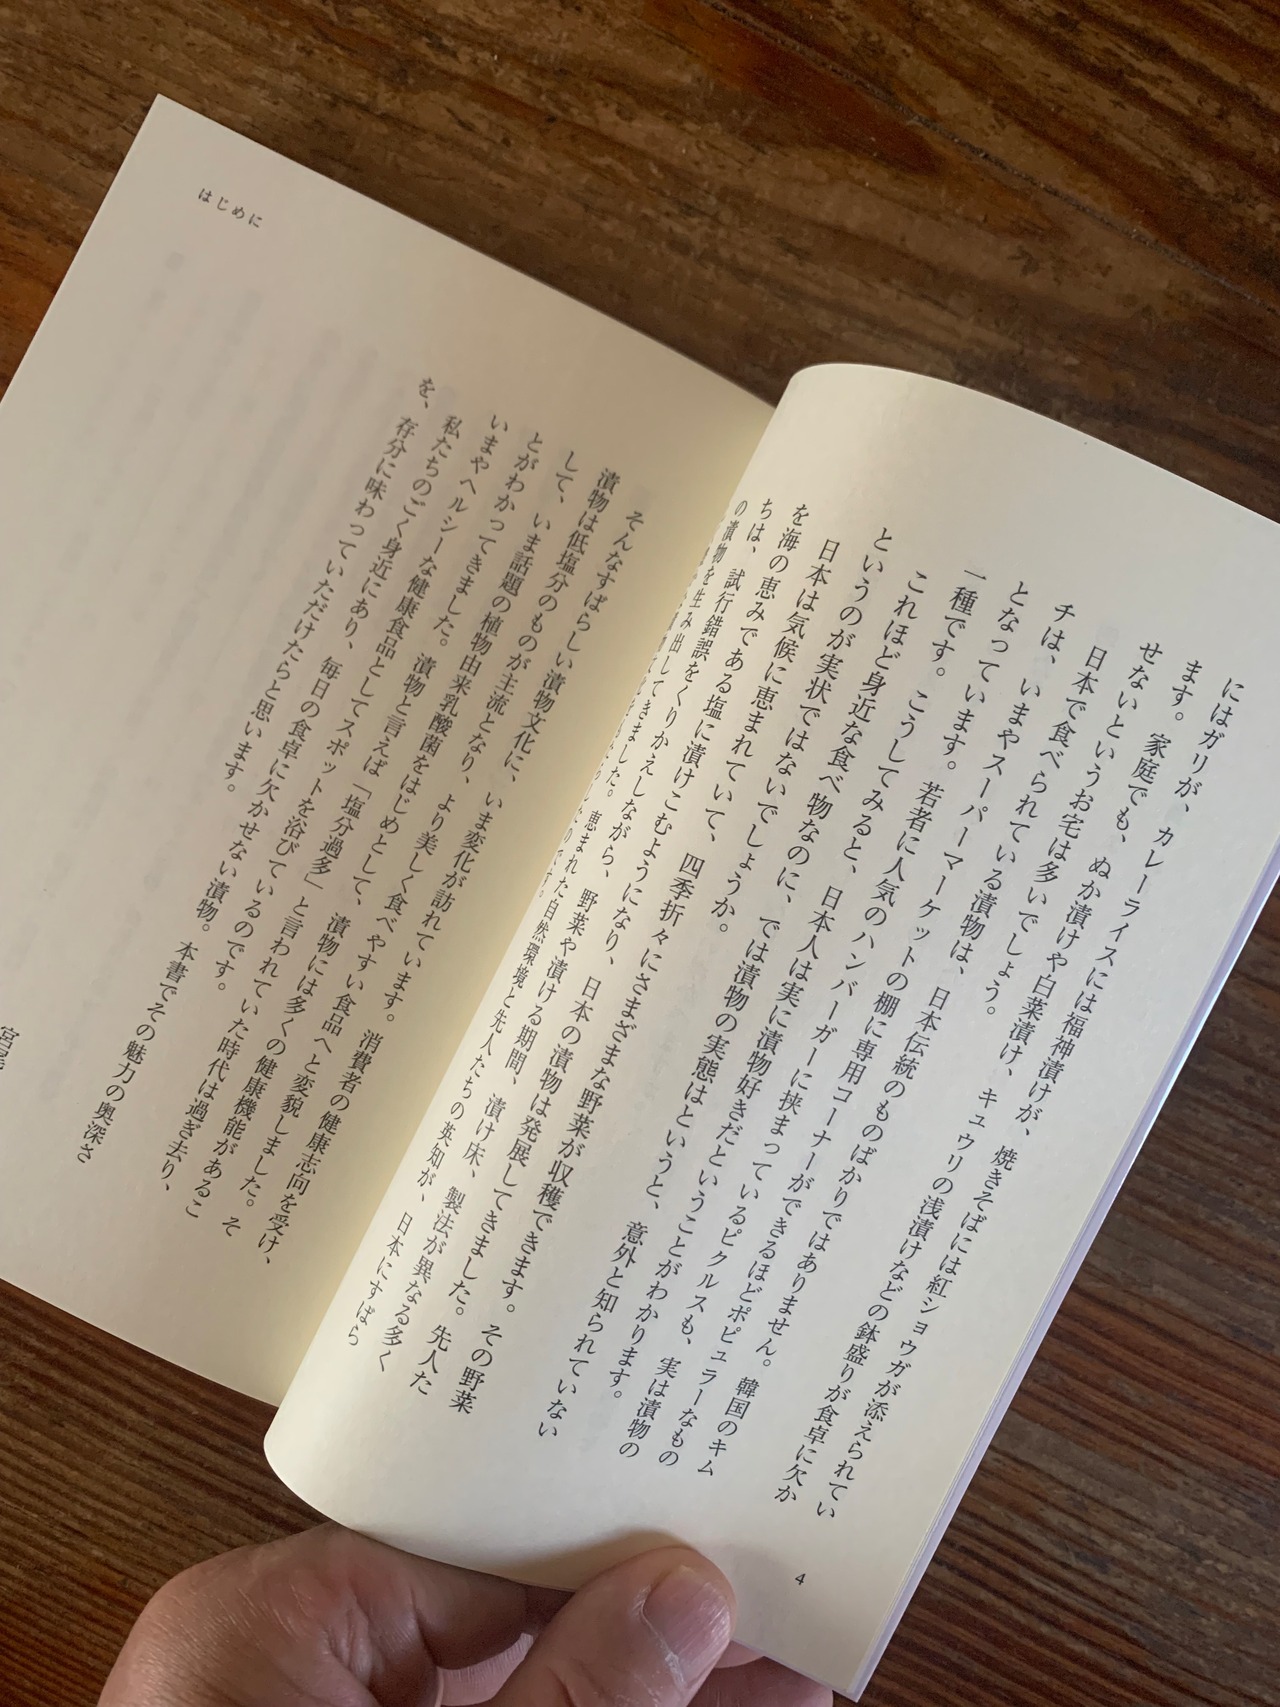 にはガリが、カレーライスには福神漬けが、焼きそばには紅ショウガが添えられてい
ます。家庭でも、ぬか漬けや白菜漬け、キュウリの浅漬けなどの鉢盛りが食卓に欠か
せないというお宅は多いでしょう。
日本で食べられている漬物は、日本伝統のものばかりではありません。韓国のキム
チは、いまやスーパーマーケットの棚に専用コーナーができるほどポピュラーなもの
となっています。若者に人気のハンバーガーに挟まっているピクルスも、実は漬物の
一種です。こうしてみると、日本人は実に漬物好きだということがわかります。
これほど身近な食べ物なのに、では漬物の実態はというと、意外と知られていない
というのが実状ではないでしょうか。
日本は気候に恵まれていて、四季折々にさまざまな野菜が収穫できます。その野菜
を海の恵みである塩に漬けこむようになり、日本の漬物は発展してきました。先人た
ちは、試行錯誤をくりかえしながら、野菜や漬ける期間、漬け床、製法が異なる多く
の漬物を生み出してきました。恵まれた自然環境と先人たちの英知が、日本にすばら
4
はじめに
そんなすばらしい漬物文化に、いま変化が訪れています。消費者の健康志向を受け、
漬物は低塩分のものが主流となり、より美しく食べやすい食品へと変貌しました。そ
して、いま話題の植物由来乳酸菌をはじめとして、漬物には多くの健康機能があるこ
とがわかってきました。漬物と言えば「塩分過多」と言われていた時代は過ぎ去り、
いまやヘルシーな健康食品としてスポットを浴びているのです。
私たちのごく身近にあり、毎日の食卓に欠かせない漬物。本書でその魅力の奥深さ
を、存分に味わっていただけたらと思います。
宮